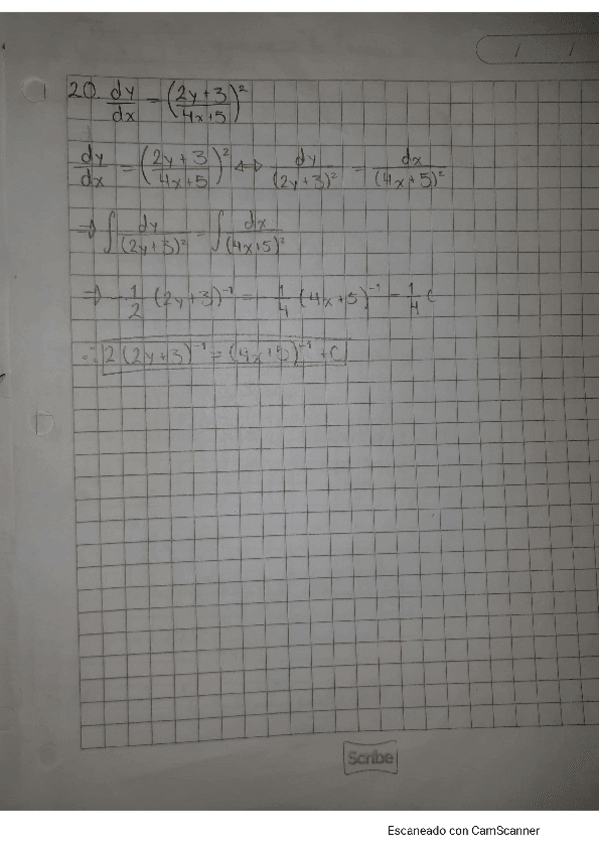 / /
20. dy/dx = ((2y+3)/(4x+5))²
dy/dx = ((2y+3)/(4x+5))² ⟷ dy/(2y+3)² = dx/(4x+5)²
⇒ ∫ dy/(2y+3)² = ∫ dx/(4x+5)²
⇒ -1/2 (2y+3)⁻¹ = -1/4 (4x+5)⁻¹ - 1/4 C
∴ 2(2y+3)⁻¹ = (4x+5)⁻¹ + C
Scribe
Escaneado con CamScanner